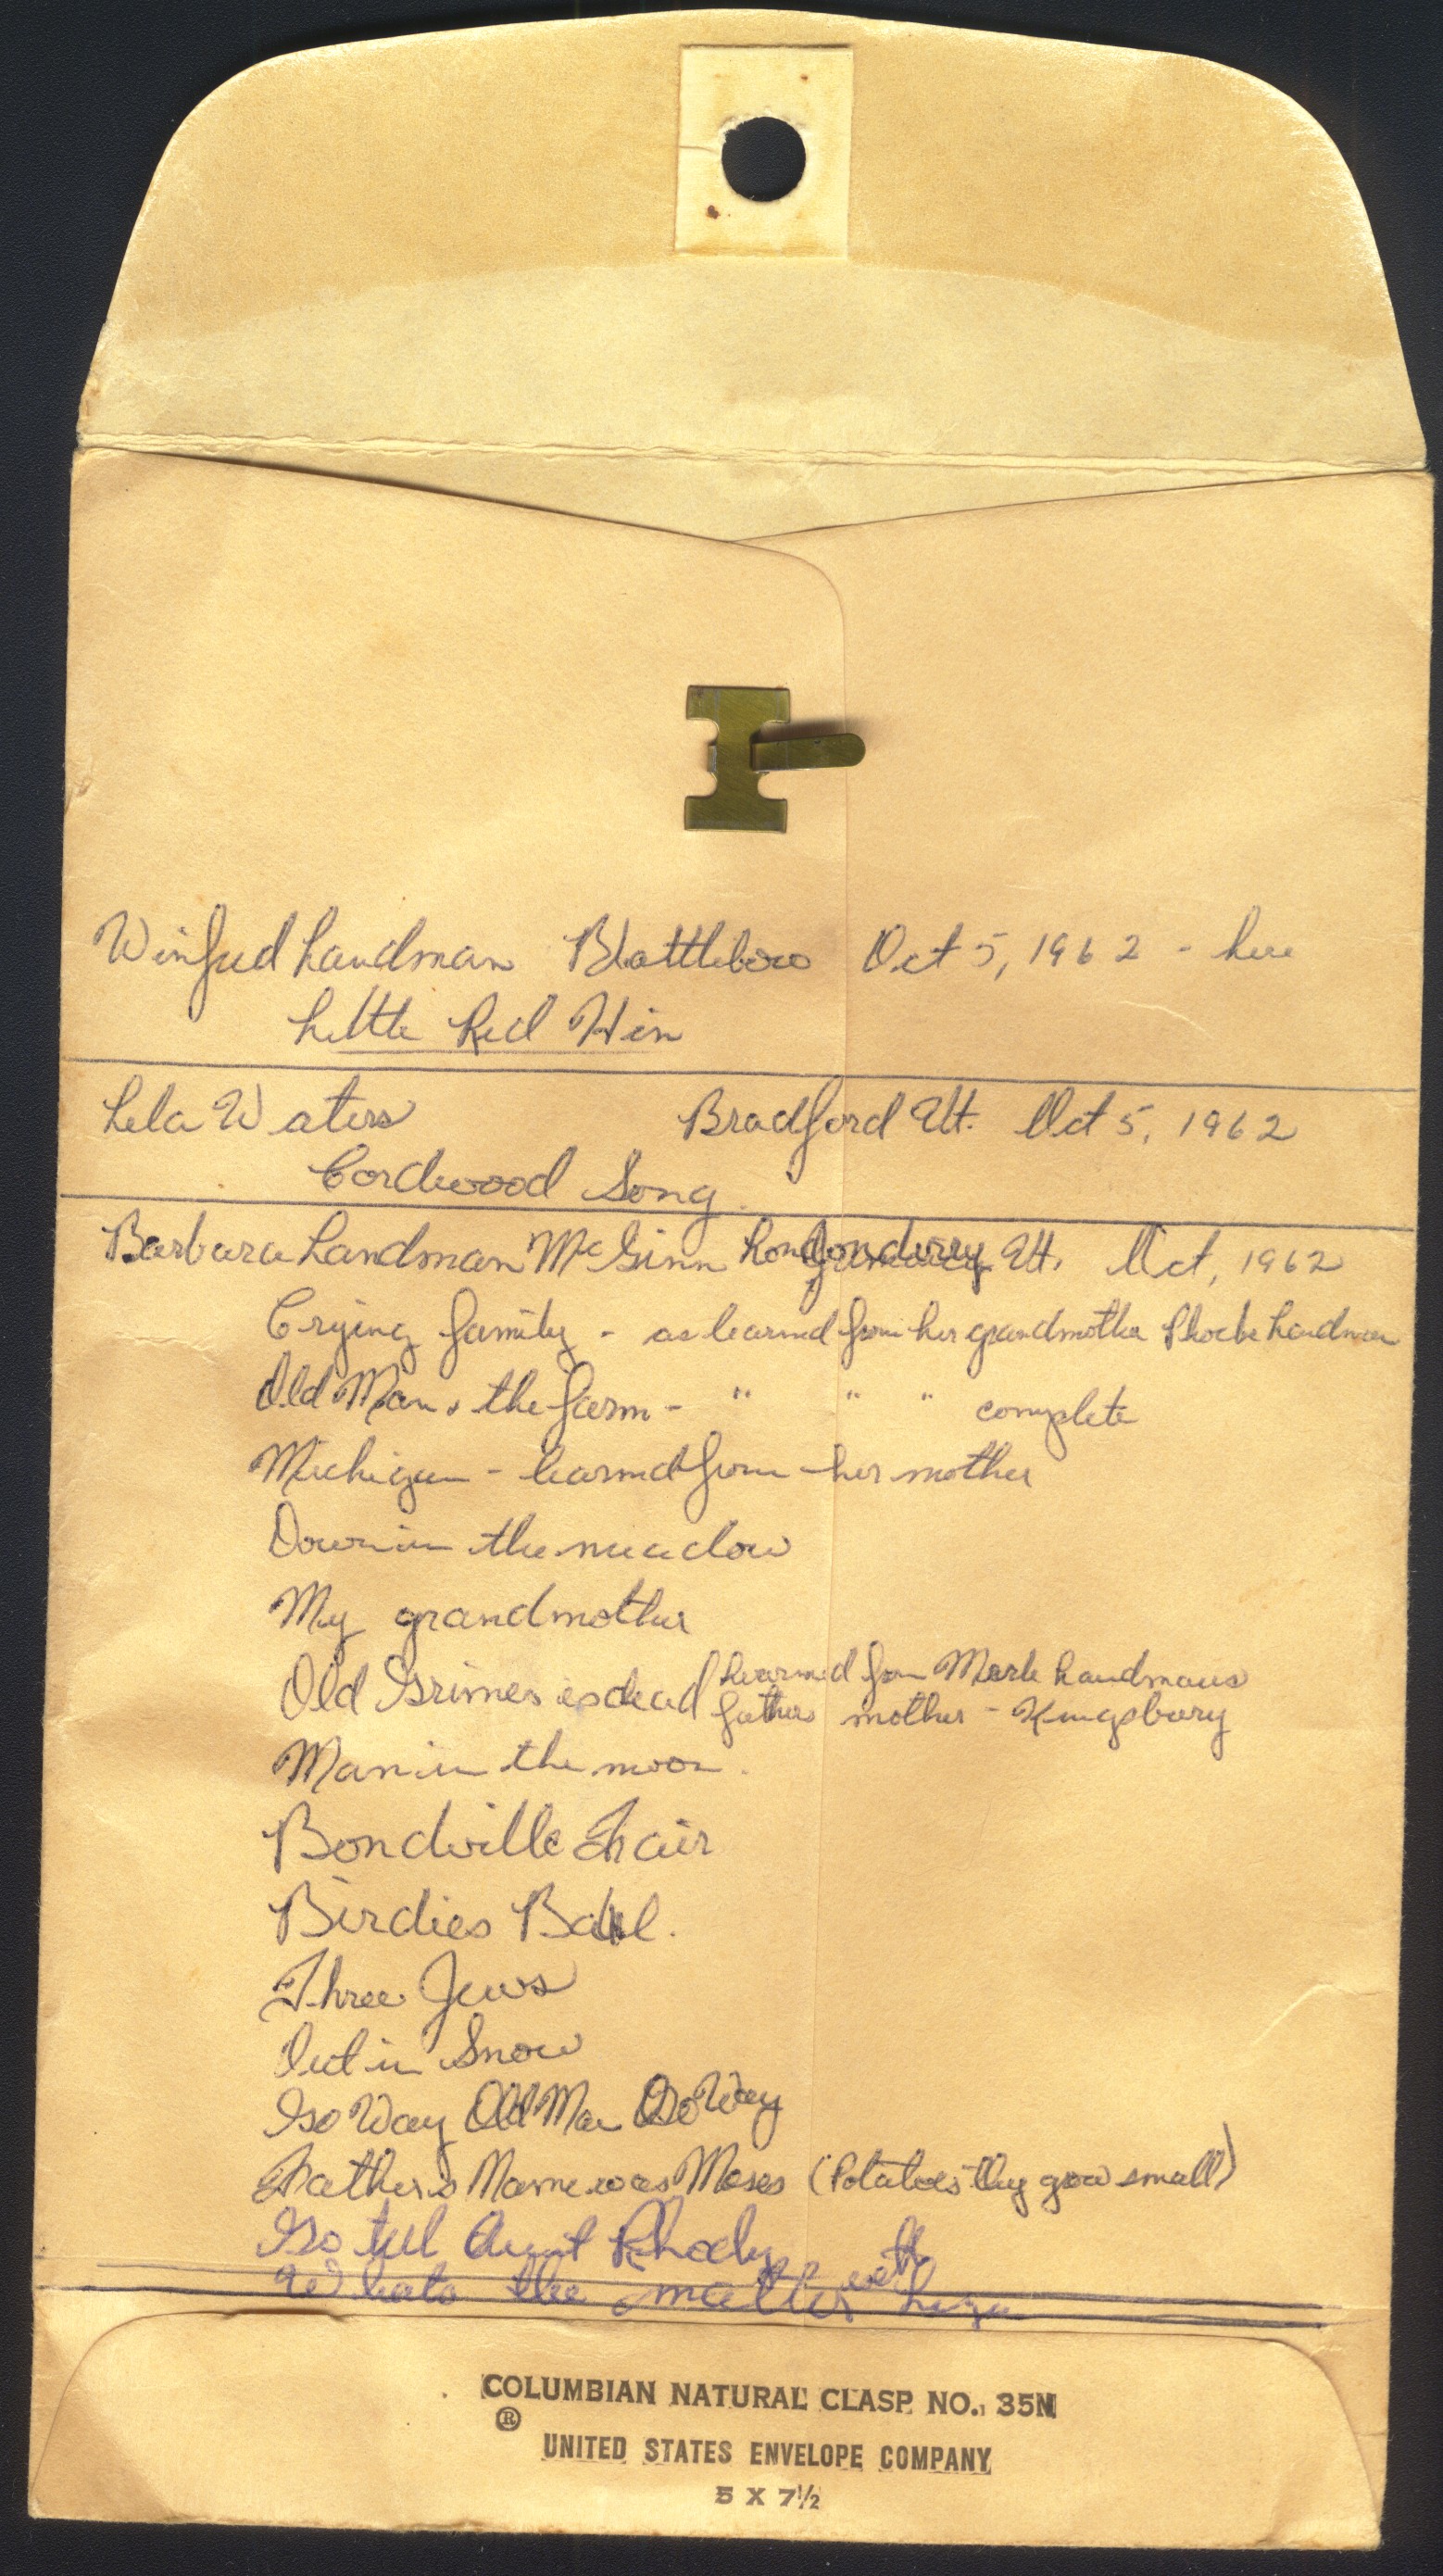 Winfred Landman Brattleboro Oct 5, 1962 - here
Little Red Hen
Lela Waters Bradford Vt. Oct 5, 1962
Cordwood Song
Barbara Landman McGinn Londonderry Vt. Oct, 1962
Crying family - as learned from her grandmother Phoebe Landman
Old Man & the farm - " " " complete
Michigan - learned from her mother
Down in the meadow
My grandmother
Old Grimes is dead learned from Merle Landmans
fathers mother - Kingsbury
Man in the moon.
Bondville Fair
Birdies Ball.
Three Jews
Out in Snow
Go Way Old Man Go Way
Father's Name was Moses (Potatoes they grow small)
Go tell Aunt Rhody
Whats the matter with Liza
COLUMBIAN NATURAL CLASP NO. 35N
®
UNITED STATES ENVELOPE COMPANY
5 X 7½